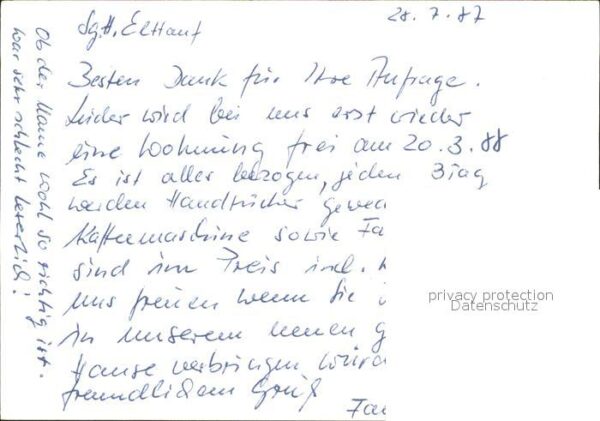 28.7.87
Sg.H. Elthauf
Besten Dank für Ihre Anfrage.
Leider wird bei uns erst wieder
eine Wohnung frei am 20.3.88
Es ist alles bezogen, jeden 3 Tag
werden Handtücher gewe
Kaffeemaschine sowie Fa
sind im Preis incl.
uns freuen wenn Sie
in unserem neuen g
Hause verbringen würd
freundlichem Gruß
Fa
Ob der Name wohl so richtig ist.
war sehr schlecht leserlich!
privacy protection
Datenschutz